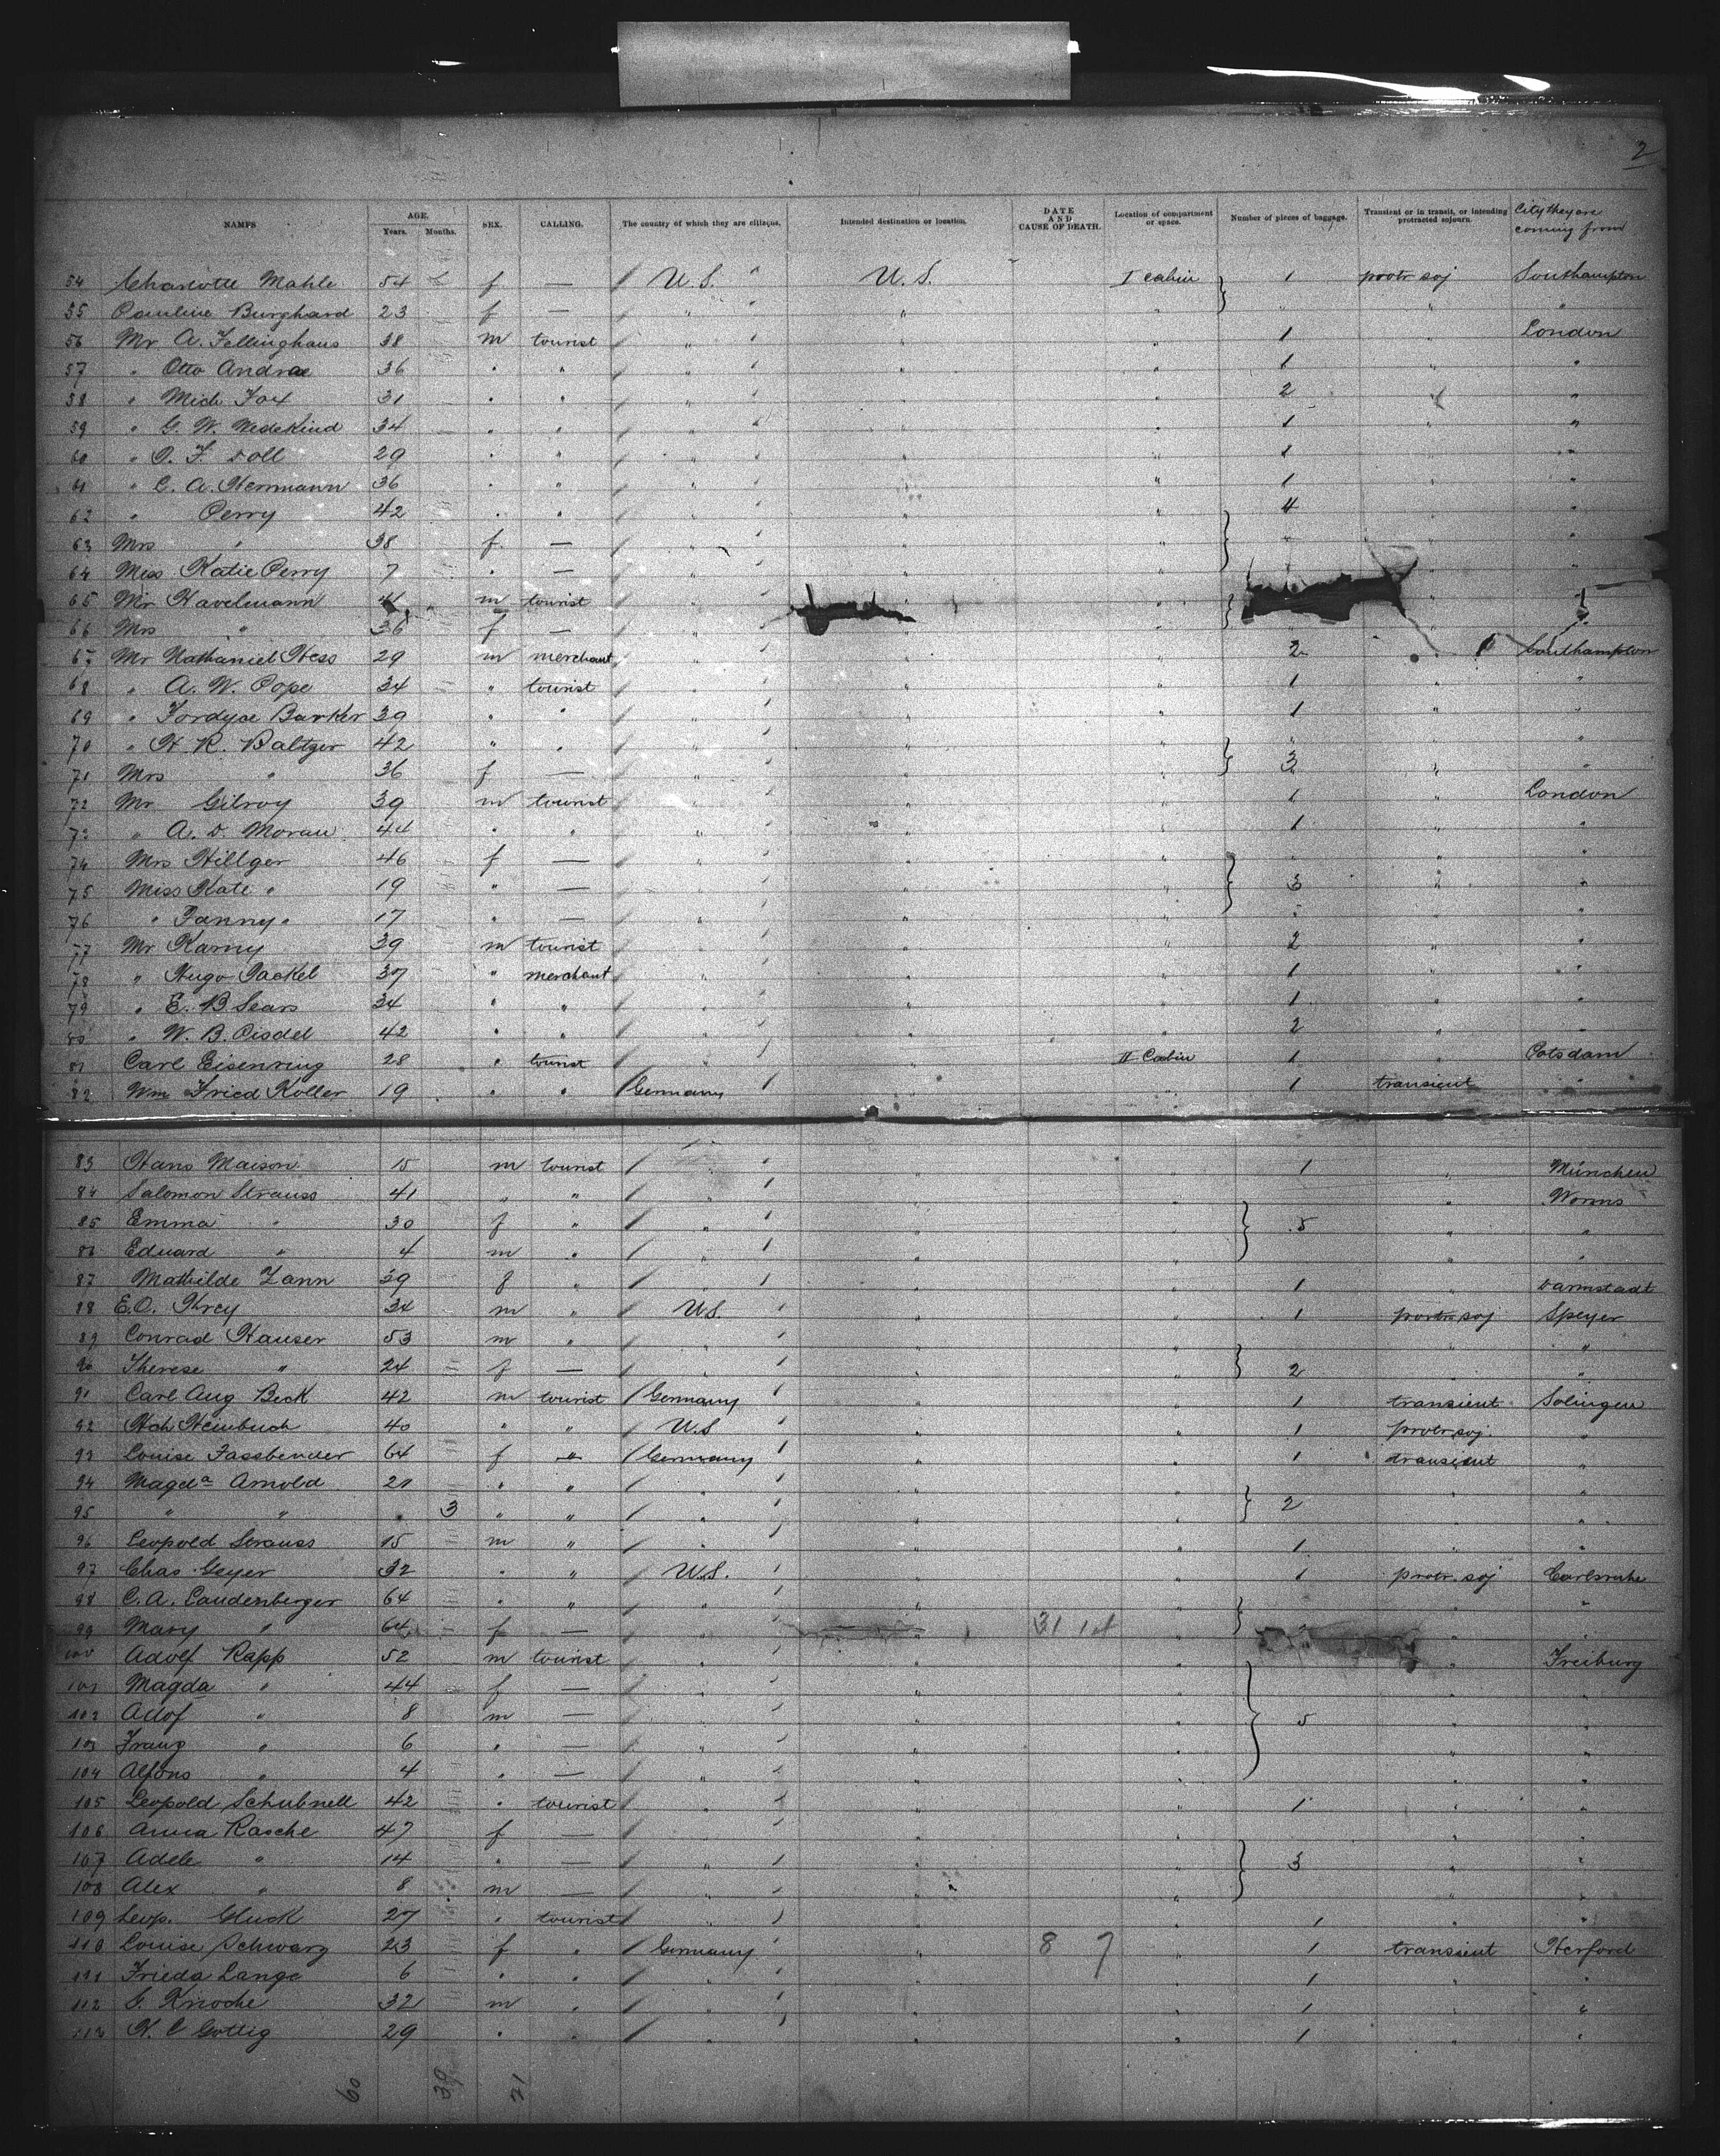 2
NAMES AGE. Years. Months. SEX. CALLING. The country of which they are citizens. Intended destination or location. DATE AND CAUSE OF DEATH. Location of compartment or space. Number of pieces of baggage. Transient or in transit, or intending protracted sojourn. City they are coming from
54 Charlotte Mahle 54 f — U.S. U.S. I cabin 1 protr soj Southampton
55 Pauline Burghard 23 f — " " " " "
56 Mr A. Fellinghaus 38 m tourist " " " 1 " London
57 " Otto Andrae 36 " " " " " 1 " "
58 " Mich Fox 31 " " " " " 2 " "
59 " G. W. Wedekind 34 " " " " " 1 " "
60 " O. F. Doll 29 " " " " " 1 " "
61 " C. A. Herrmann 36 " " " " " 1 " "
62 " Perry 42 " " " " " 4 " "
63 Mrs " 38 f — " " " " " "
64 Miss Katie Perry 7 " — " " " "
65 Mr Havelmann 41 m tourist " " "
66 Mrs " 36 f — " " " " "
67 Mr Nathaniel Hess 29 m merchant " " " 2 " Southampton
68 " A. W. Pope 34 " tourist " " " 1 " "
69 " Fordyce Barker 39 " " " " " 1 " "
70 " H. R. Baltzer 42 " " " " " " " "
71 Mrs " 36 f — " " " 3 " "
72 Mr Gilroy 39 m tourist " " " 1 " London
73 " A. D. Moran 44 " " " " " 1 " "
74 Mrs Hillger 46 f — " " " " " "
75 Miss Kate " 19 " — " " " 3 " "
76 " Fanny " 17 " — " " " " " "
77 Mr Karny 39 m tourist " " " 2 " "
78 " Hugo Jackel 37 " merchant " " " 1 " "
79 " E. B. Sears 34 " " " " " 1 " "
80 " W. B. Pisdel 42 " " " " " 2 " "
81 Carl Eisenring 28 " tourist " " II Cabin 1 " Potsdam
82 Wm Fried Koller 19 " " Germany " " 1 transient "
83 Hans Maison 15 m tourist " " " 1 " München
84 Salomon Strauss 41 " " " " " " Worms
85 Emma " 30 f " " " " 5 " "
86 Eduard " 4 m " " " " " "
87 Mathilde Zann 39 f " " " " 1 " Darmstadt
88 E.O. Krey 34 m " U.S. " " 1 protr soj Speyer
89 Conrad Hauser 53 m " " " " " "
90 Therese " 24 f — " " " 2 " "
91 Carl Aug Beck 42 m tourist Germany " " 1 transient Solingen
92 Hch Heinbuch 40 " " U.S " " 1 protr soj "
93 Louise Fassbender 64 f " Germany " " 1 transient "
94 Magda Arnold 21 " " " " " " "
95 " " " 3 " " " " " 2 " "
96 Leopold Strauss 15 m " " " " 1 " "
97 Chas Geyer 32 " " U.S. " " 1 protr. soj Carlsruhe
98 C. A. Laudenberger 64 " " " " " " "
99 Mary " 64 f — " " 31 " "
100 Adolf Rapp 52 m tourist " " " " Freiburg
101 Magda " 44 f — " " " " "
102 Adof " 8 m — " " " 5 " "
103 Franz " 6 " — " " " " "
104 Alfons " 4 " — " " " " "
105 Leopold Schubnell 42 " tourist " " " 1 " "
106 Anna Rasche 47 f — " " " " "
107 Adele " 14 " — " " " 3 " "
108 Alex " 8 m — " " " " "
109 Leop. Gluck 27 " tourist " " " 1 " "
110 Louise Schwarz 23 f " Germany " 8 7 " 1 transient Herford
111 Frieda Lange 6 " " " " " 1 " "
112 Knoche 32 m " " " " 1 " "
113 H. C Gottig 29 " " " " " 1 " "
60 39 21